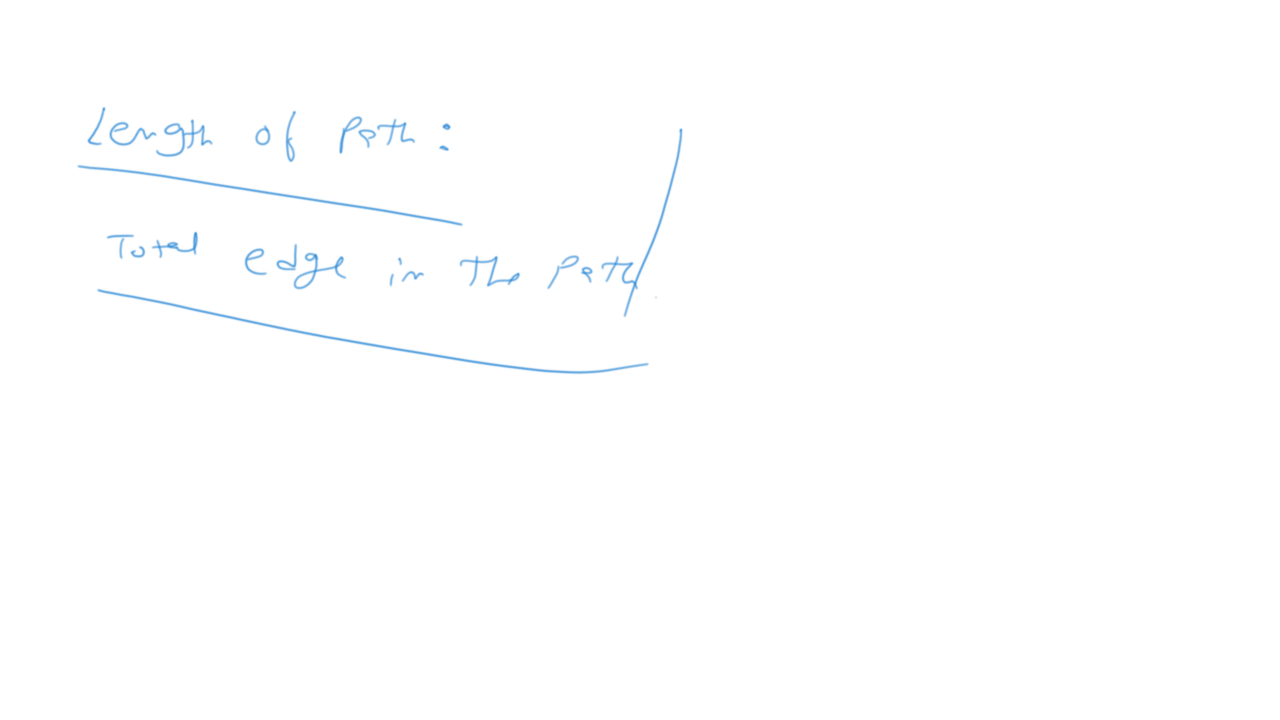 Length of Path:
Total edge in the Path